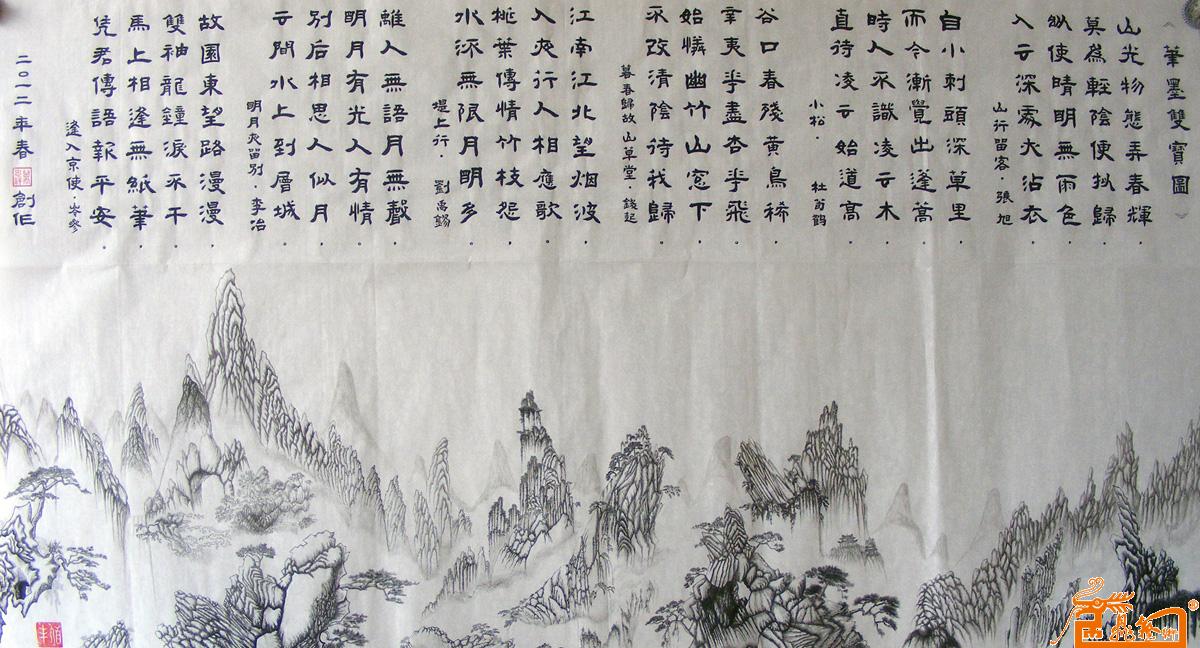 《筆墨雙寶圖》
山光物態弄春輝．
莫為輕陰便擬歸．
縱使晴明無雨色．
入云深處亦沾衣．
山行留客．張旭
自小刺頭深草里．
而今漸覺出蓬蒿．
時人不識凌云木．
直待凌云始道高．
小松．杜荀鶴
谷口春殘黃鳥稀．
辛夷半盡杏半飛．
始憐幽竹山窓下．
不改清陰待我歸．
暮春歸故山草堂．錢起
江南江北望烟波．
入夜行人相應歌．
桃葉傳情竹枝怨．
水流無限月明多．
堤上行．劉禹錫
離人無語月無聲．
明月有光人有情．
別后相思人似月．
云間水上到層城．
明月夜留別．李冶
故園東望路漫漫．
雙袖龍鐘淚不干．
馬上相逢無紙筆．
凭君傳語報平安．
逢入京使．岑參
二〇一二年春
創作